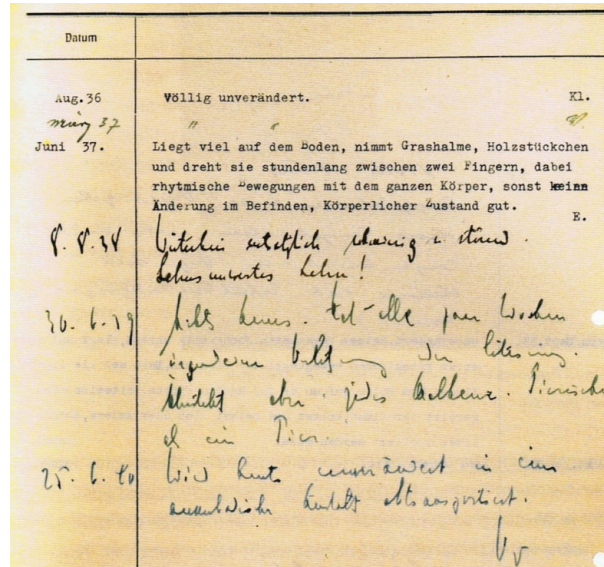 Datum
Aug.36 Völlig unverändert. Kl.
März 37 " "
Juni 37. Liegt viel auf dem Boden, nimmt Grashalme, Holzstückchen
und dreht sie stundenlang zwischen zwei Fingern, dabei
rhytmische Bewegungen mit dem ganzen Körper, sonst keine
Änderung im Befinden, Körperlicher Zustand gut.
E.
8.8.38 Weiterhin entsetzlich schwierig u. störend.
Lebensunwertes Leben!
30.6.39 Nichts neues. Hat alle paar Wochen
irgendeine der
aber jedes. Tierischer
als ein Tier.
25.6.40 Wird heute unverändert in eine
Anstalt abtransportiert.